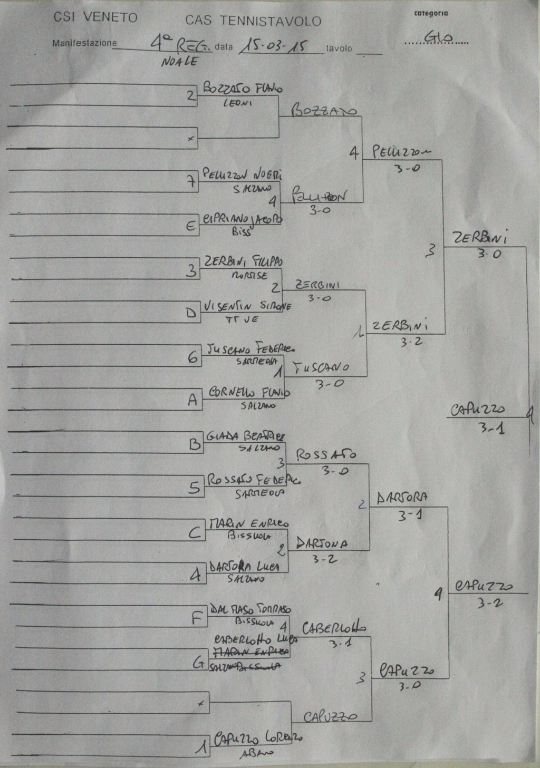 CSI VENETO CAS TENNISTAVOLO categoria
Manifestazione 4ª REG. data 15-03-15 tavolo GIO
NOALE
2 BOZZATO FLAVIO
LEONI
BOZZATO
x
4 PELLIZZON
3-0
7 PELLIZZON NOEMI
SALZANO
4 PELLIZZON
3-0
E CIPRIANO JACOPO
BISS
3 ZERBINI
3-0
3 ZERBINI FILIPPO
MORTISE
2 ZERBINI
3-0
D VISENTIN SIMONE
TT VE
1 ZERBINI
3-2
6 TUSCANO FEDERICO
SARMEOLA
1 TUSCANO
3-0
A CORNELLO FLAVIO
SALZANO
CAPUZZO 1
3-1
B GIADA BEATRICE
SALZANO
3 ROSSATO
3-0
5 ROSSATO FEDERIC
SARMEOLA
2 DARTORA
3-1
C MARIN ENRICO
BISSUOLA
2 DARTORA
3-2
4 DARTORA LUCA
SALZANO
4 CAPUZZO
3-2
F DAL MASO TOMMASO
BISSUOLA
4 CABERLOTTO
3-1
CABERLOTTO LUCA
G MARIN ENRICO
SALZANO BISSUOLA
3 CAPUZZO
3-0
x
CAPUZZO
1 CAPUZZO LORENZO
ABANO